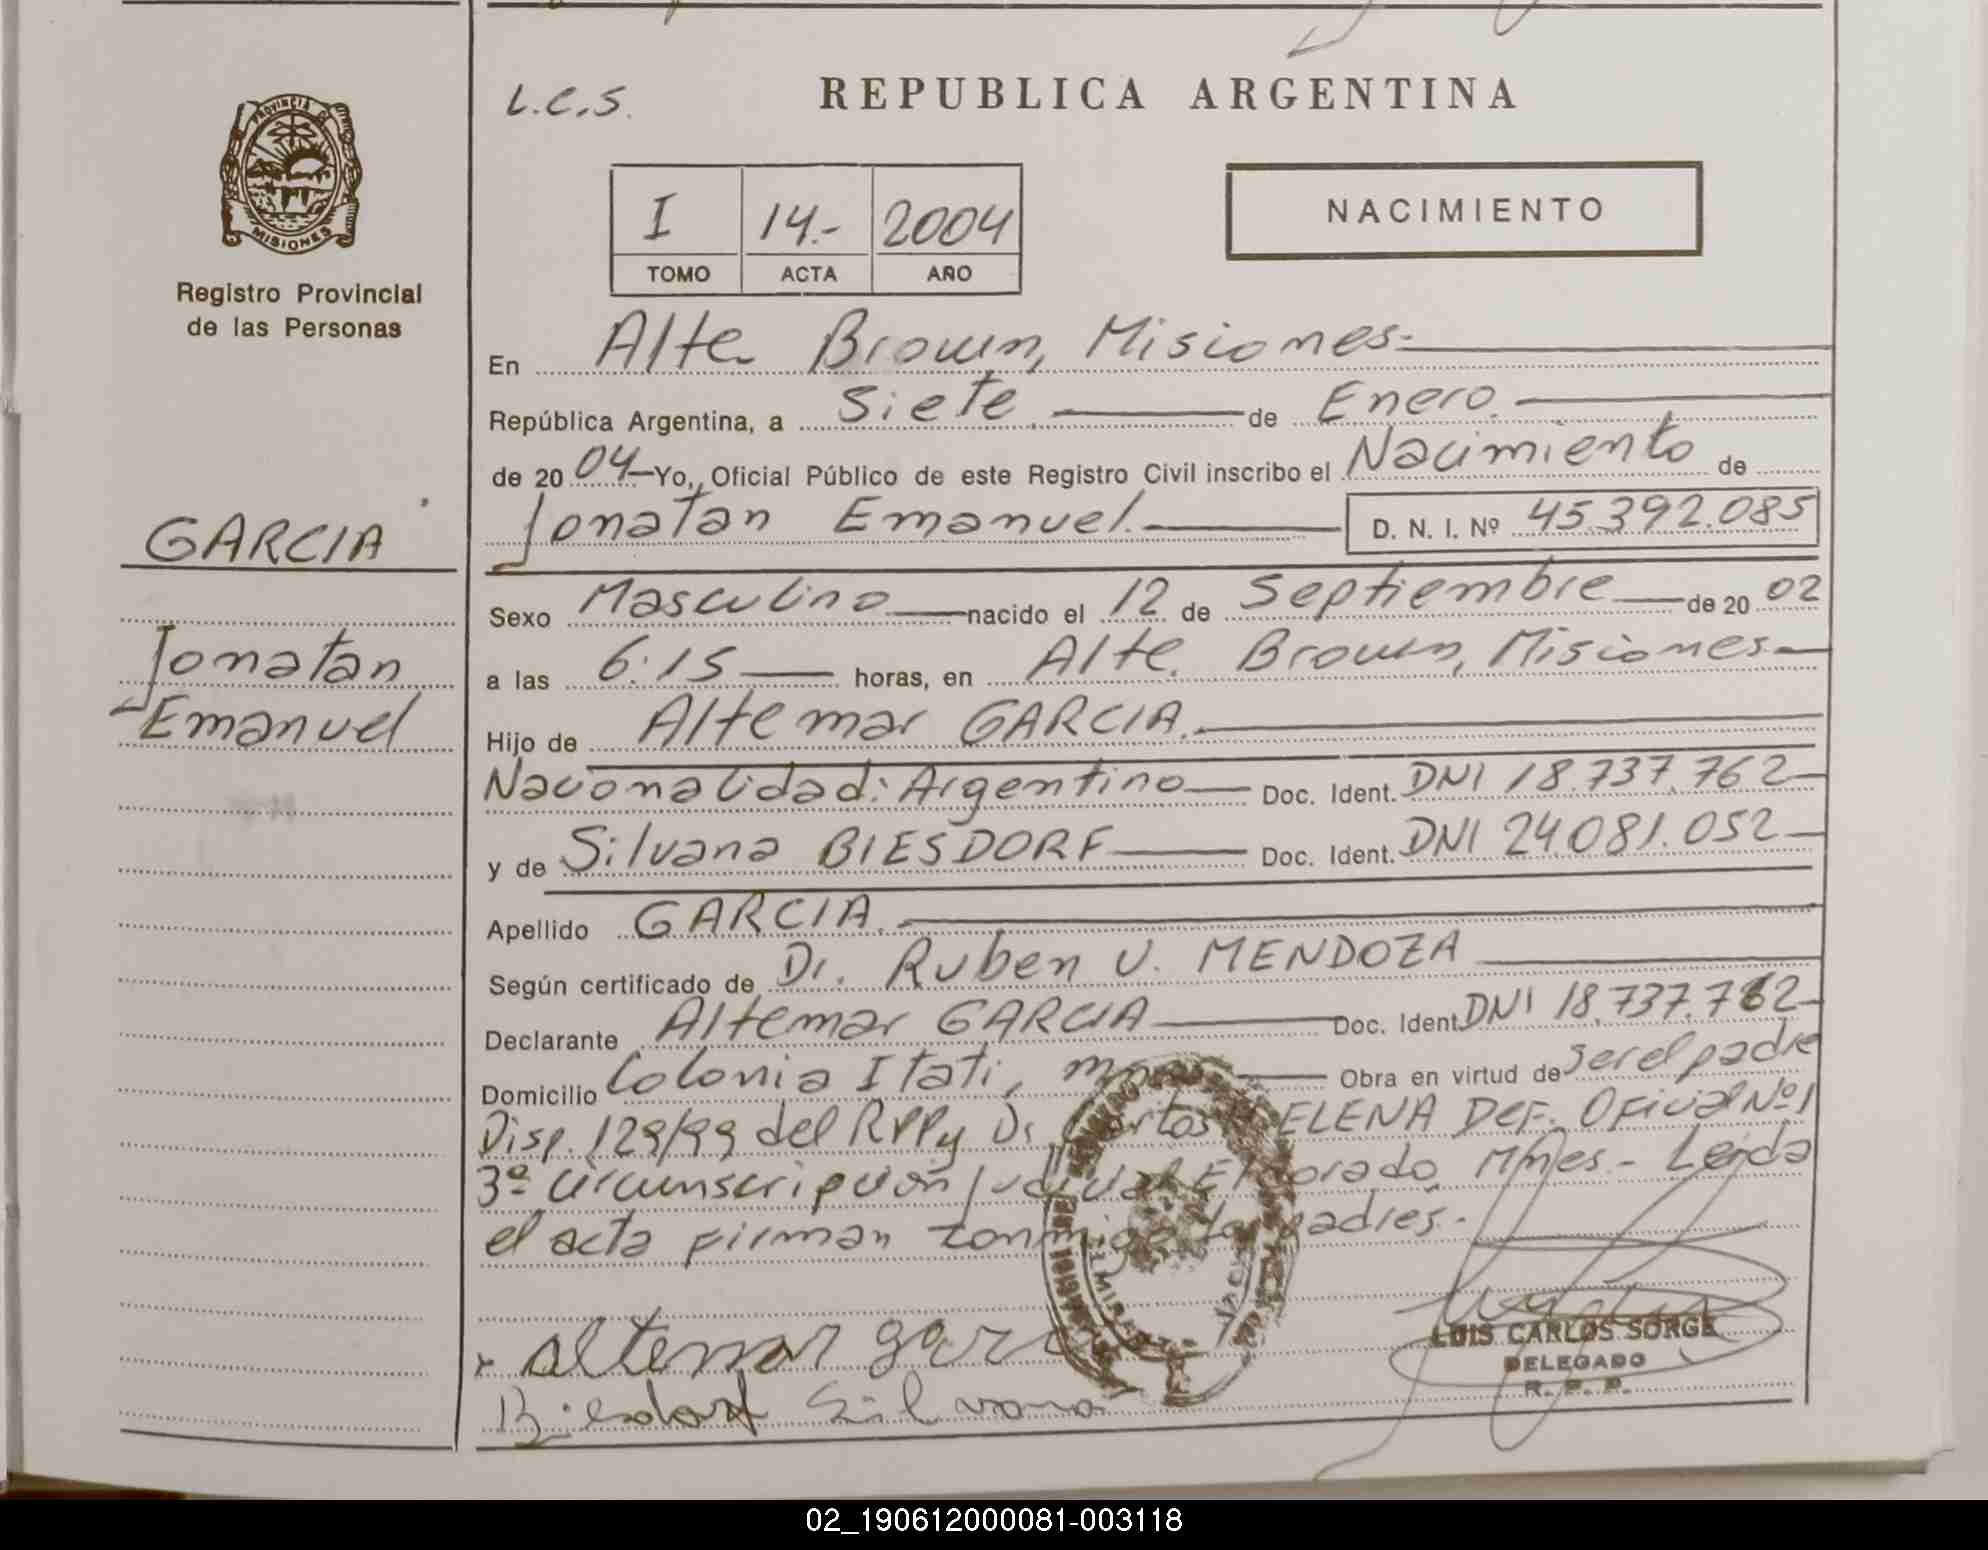 L.C.S.
REPUBLICA ARGENTINA
PROVINCIA DE
MISIONES
Registro Provincial
de las Personas
I 14.- 2004
TOMO ACTA AÑO
NACIMIENTO
En Alte. Brown, Misiones.-
República Argentina, a Siete de Enero.
de 20 04 Yo, Oficial Público de este Registro Civil inscribo el Nacimiento de
Jonatan Emanuel. D. N. I. Nº 45.392.085
GARCIA
Jonatan
Emanuel
Sexo Masculino nacido el 12 de Septiembre de 20 02
a las 6:15 horas, en Alte. Brown, Misiones
Hijo de Altemar GARCIA.
Nacionalidad: Argentino Doc. Ident. DNI 18.737.762
y de Silvana BIESDORF Doc. Ident. DNI 24.081.052
Apellido GARCIA.
Según certificado de Dr. Ruben V. MENDOZA
Declarante Altemar GARCIA Doc. Ident. DNI 18.737.762
Domicilio Colonia Itati, Obra en virtud de ser el padre
Disp. 129/99 del RPPy Dr. Carlos ELENA DEF. Oficial Nº1
3º circunscripción Judicial Eldorado, Mnes.- Leida
el acta firman conmigo los padres.-
x altemar garc
Biesdorf Silvana
LUIS CARLOS SORGE
DELEGADO
R. P. P.
02_190612000081-003118